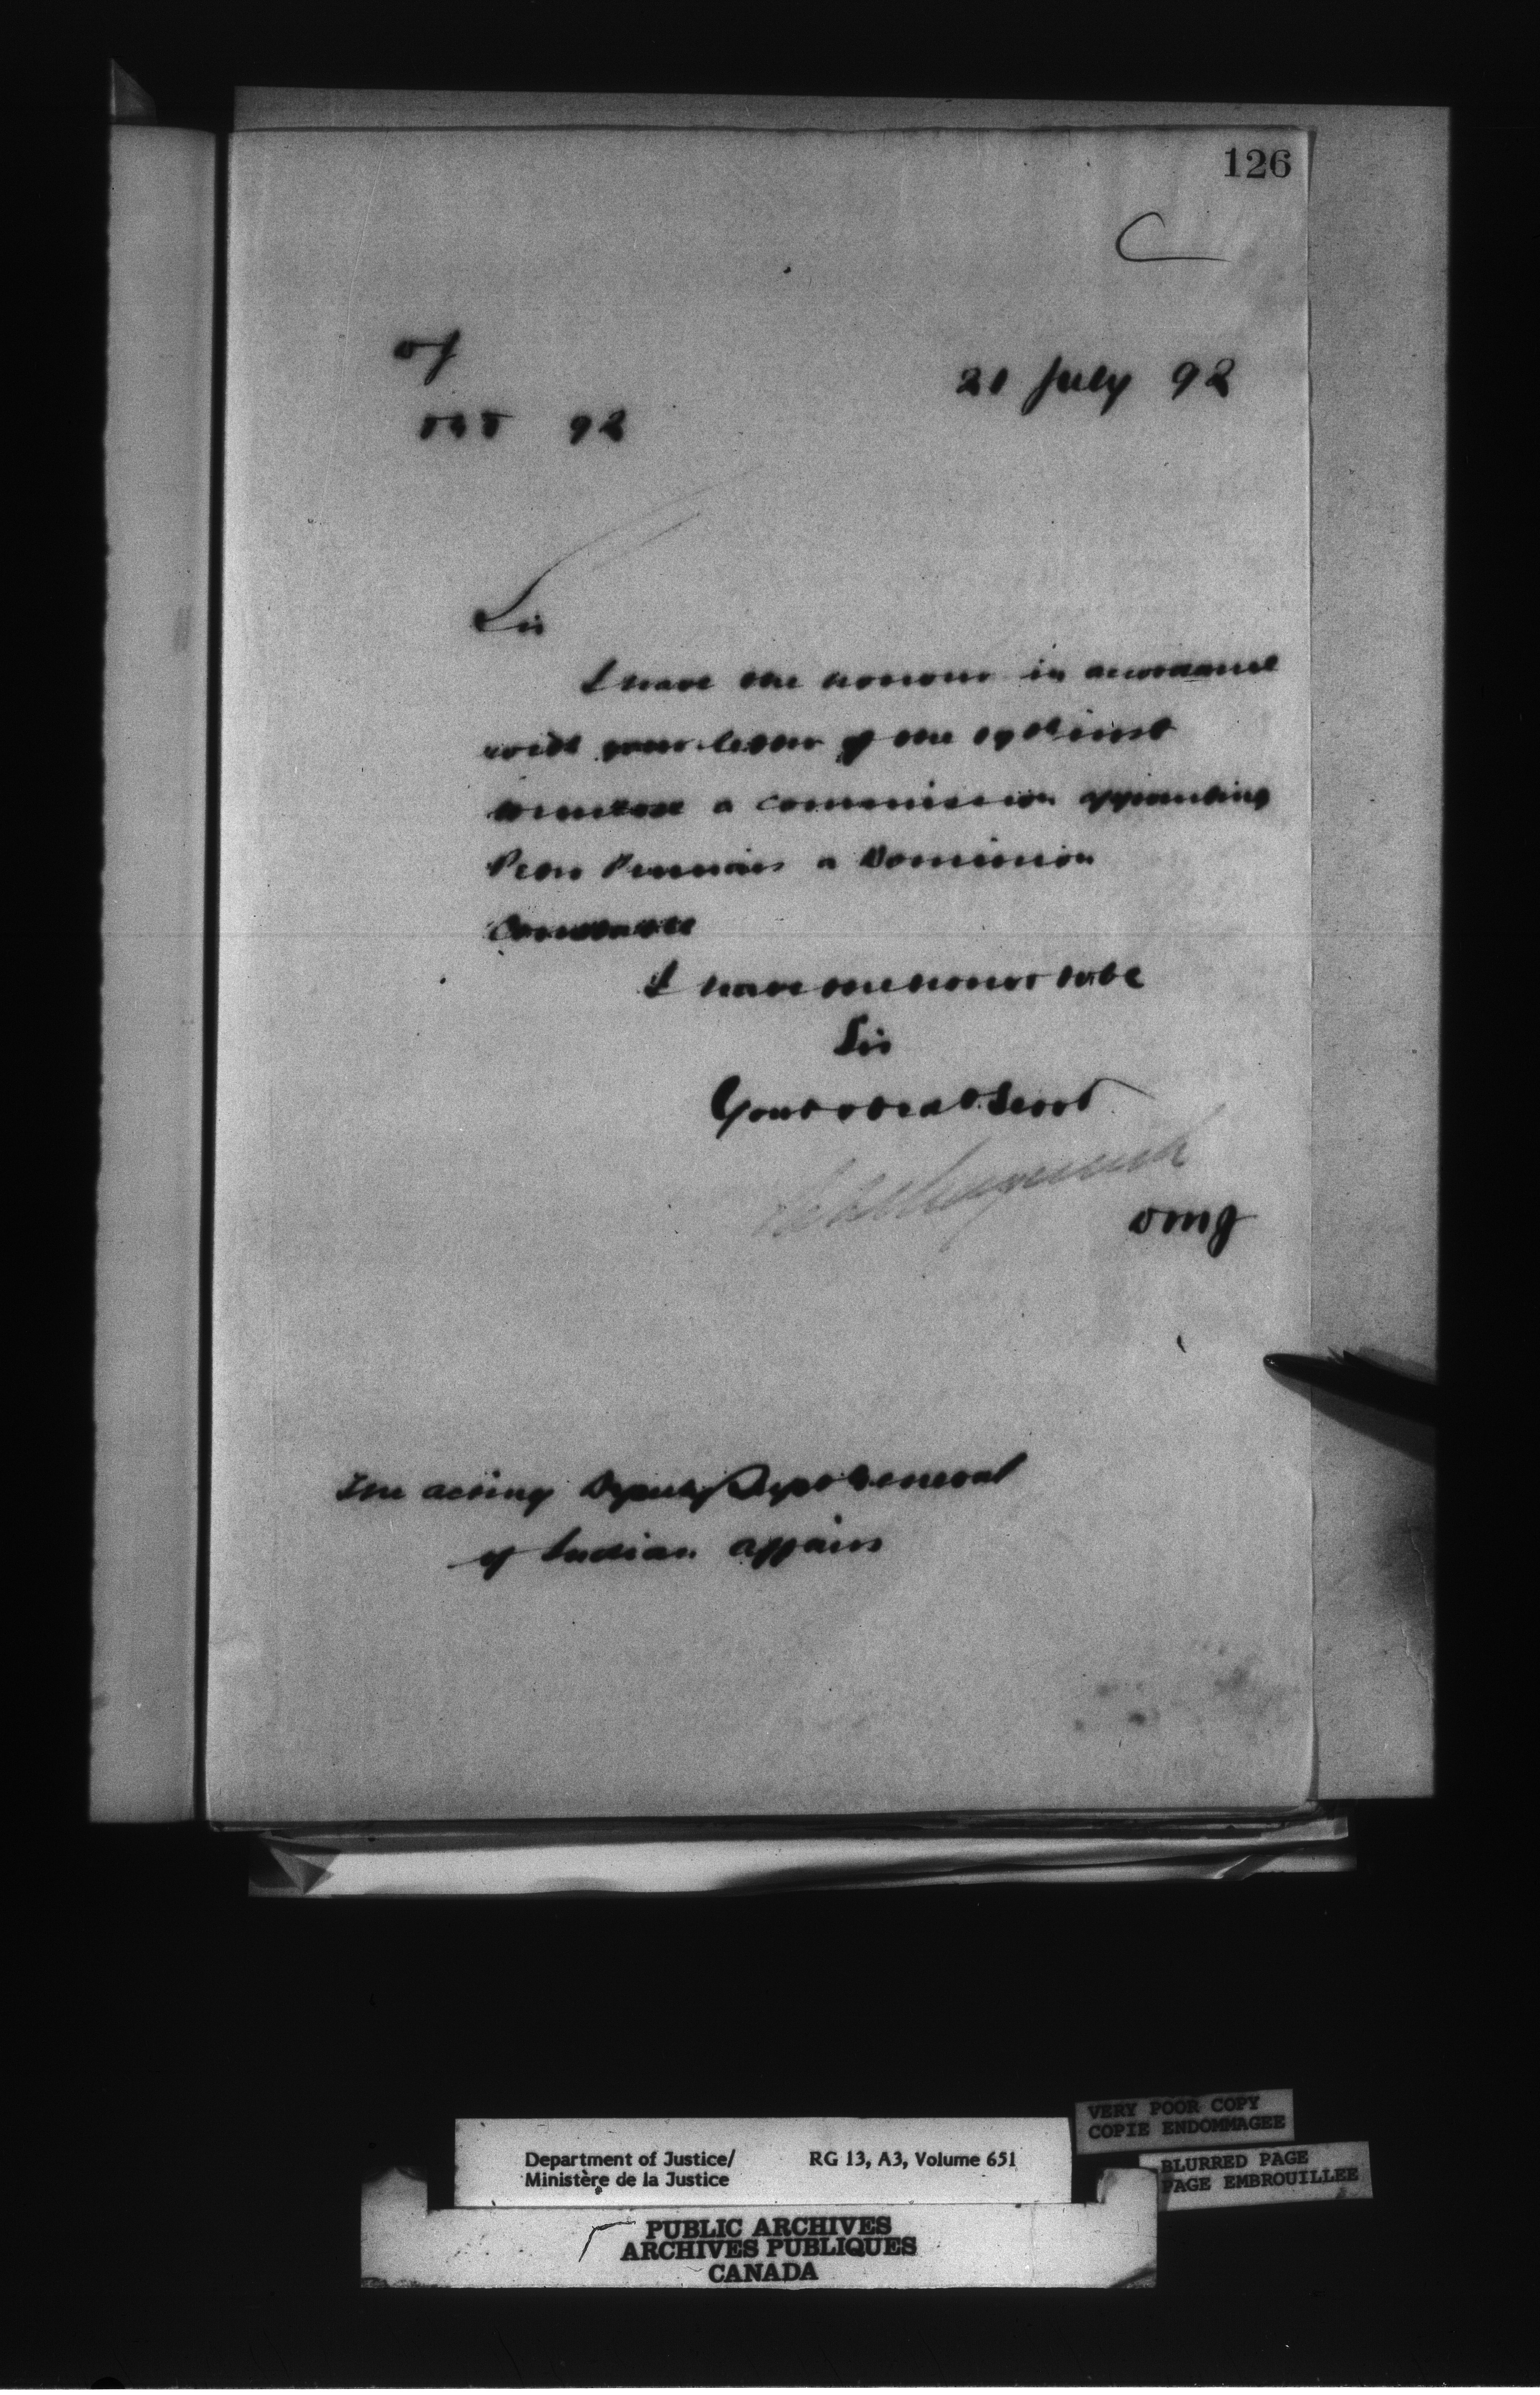 126
C
of
92
21 July 92
Sir
I have the honour in accordance
with your letter of the 19th inst
to enclose a commission appointing
a Dominion
Constable
I have the honor to be
Sir
Your obedt Servt
omg
The acting Deputy Supt General
of Indian affairs
VERY POOR COPY
COPIE ENDOMMAGEE
BLURRED PAGE
PAGE EMBROUILLEE
Department of Justice/ RG 13, A3, Volume 651
Ministère de la Justice
PUBLIC ARCHIVES
ARCHIVES PUBLIQUES
CANADA